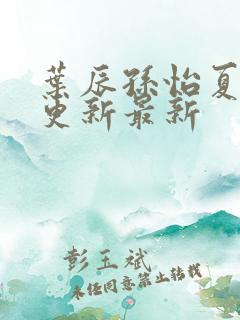 葉辰孫怡夏
更新最新
彭玉斌
未经同意禁止转载